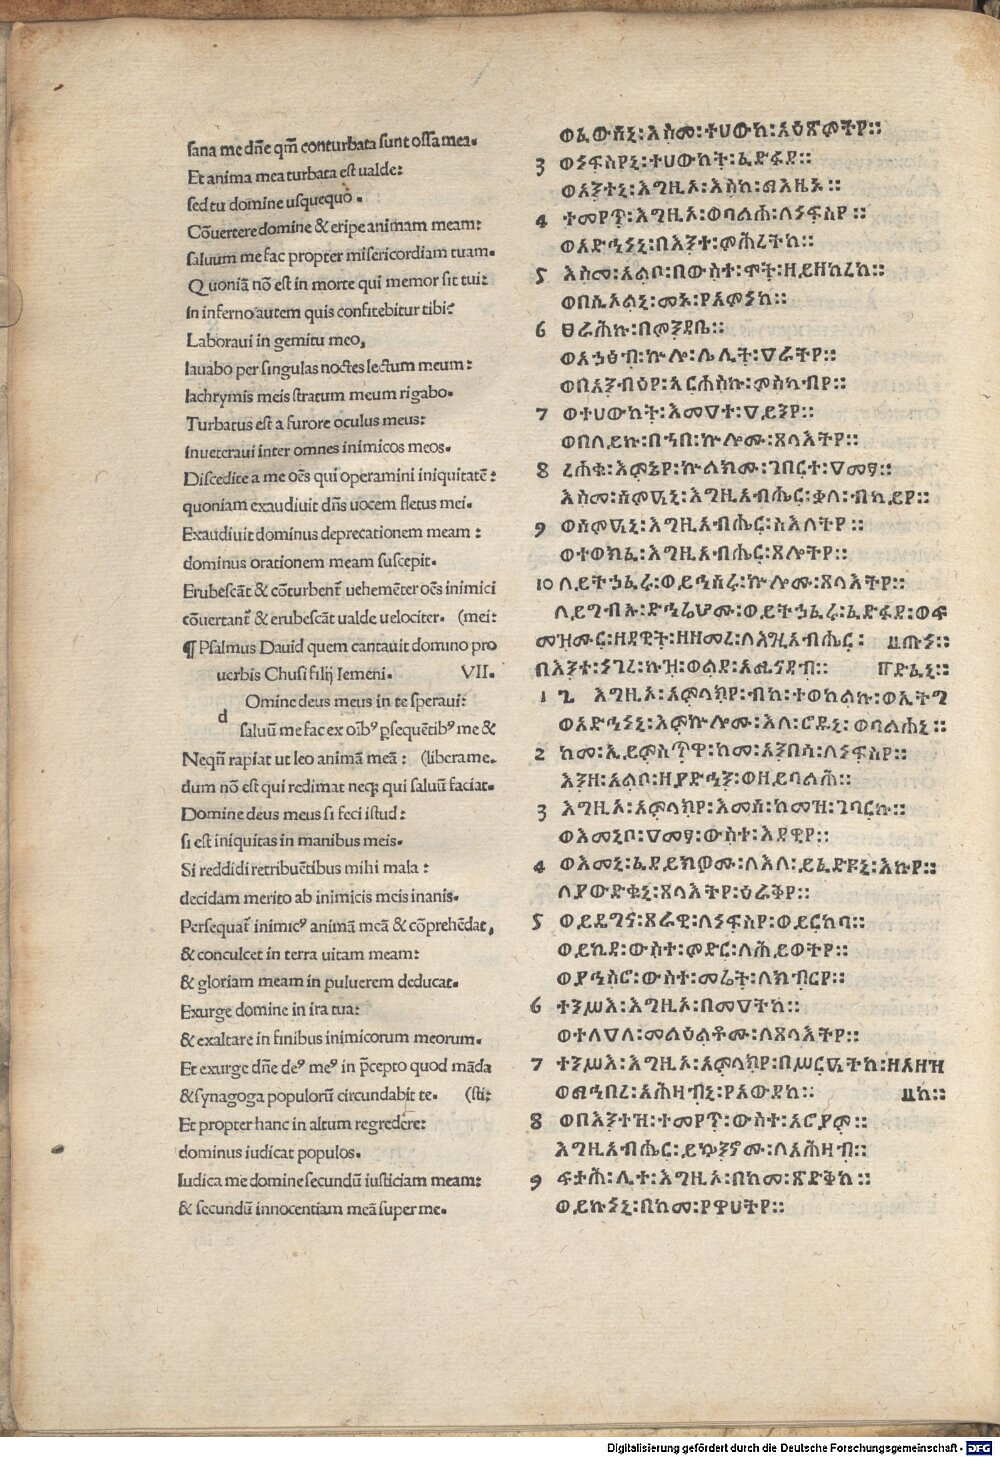 sana me dñe qm̃ conturbata sunt ossa mea.
Et anima mea turbata est ualde:
sed tu domine usquequo.
Cõuertere domine & eripe animam meam:
saluum me fac propter misericordiam tuam.
Quoniã nõ est in morte qui memor sit tui:
in inferno autem quis confitebitur tibi:
Laboraui in gemitu meo,
lauabo per singulas noctes lectum meum:
lachrymis meis stratum meum rigabo.
Turbatus est a furore oculus meus:
inueteraui inter omnes inimicos meos.
Discedite a me oẽs qui operamini iniquitatẽ:
quoniam exaudiuit dñs uocem fletus mei.
Exaudiuit dominus deprecationem meam:
dominus orationem meam suscepit.
Erubescãt & cõturbent̃ uehemẽter oẽs inimici
cõuertant̃ & erubescãt ualde uelociter. (mei:
¶ Psalmus Dauid quem cantauit domino pro
uerbis Chusi filij Iemeni. VII.
Omine deus meus in te speraui:
d
saluũ me fac ex oĩbꝰ ꝑsequẽtibꝰ me &
Neqñ rapiat ut leo animã meã: (libera me.
dum nõ est qui redimat neqꝫ qui saluũ faciat.
Domine deus meus si feci istud:
si est iniquitas in manibus meis.
Si reddidi retribuẽtibus mihi mala:
decidam merito ab inimicis meis inanis.
Persequat̃ inimicꝰ animã meã & cõprehẽdat,
& conculcet in terra uitam meam:
& gloriam meam in puluerem deducat.
Exurge domine in ira tua:
& exaltare in finibus inimicorum meorum.
Et exurge dñe deꝰ meꝰ in p̃cepto quod mãda
& synagoga populorũ circundabit te. (sti:
Et propter hanc in altum regredere:
dominus iudicat populos.
Iudica me domine secundũ iusticiam meam:
& secundũ innocentiam meã super me.
ወፈውሰኒ፡እስመ፡ተሀውከ፡አዕጽምትየ።
3 ወነፍስየኒ፡ተሀውከት፡ፈድፋደ።
ወአንተኒ፡እግዚኦ፡እስከ፡ማእዜኑ።
4 ተመየጥ፡እግዚኦ፡ወባልሓ፡ለነፍስየ።
ወአድኅነኒ፡በእንተ፡ምሕረትከ።
5 እስመ፡አልቦ፡በውስተ፡ሞት፡ዘይዘከረከ።
ወበሲኦልኒ፡መኑ፡የአምነከ።
6 ሰራሕኩ፡በምንዳቤ።
ወአኀፅብ፡ኵሎ፡ሌሊተ፡ዐራትየ።
ወበአንብዕየ፡አርሐስኩ፡ምስካብየ።
7 ወተሀውከት፡እመዐት፡ዐይንየ።
ወበለይኩ፡በኀበ፡ኵሎሙ፡ጸላእትየ።
8 ረሐቁ፡እምኔየ፡ኵልክሙ፡ገበርተ፡ዐመፃ።
እስመ፡ሰምዐኒ፡እግዚአብሔር፡ቃለ፡ብካይየ።
9 ወሰምዐኒ፡እግዚአብሔር፡ስእለትየ።
ወተወክፈ፡እግዚአብሔር፡ጸሎትየ።
10 ለይትኀፈሩ፡ወይኅሰሩ፡ኵሎሙ፡ጸላእትየ።
ለይግብኡ፡ድኅሬሆሙ፡ወይትኀፈሩ፡ፈድፋደ፡ወፍ
መዝሙር፡ዘዳዊት፡ዘዘመረ፡ለእግዚአብሔር፡ ጡነ።
በእንተ፡ነገረ፡ኩዝ፡ወልደ፡አሜናዳብ።
1 እግዚኦ፡አምላኪየ፡ብከ፡ተወከልኩ፡ወኢትግ
ወአድኅነኒ፡እምኵሎሙ፡እለ፡ሮዱኒ፡ወባልሐኒ።
2 ከመ፡ኢይምስጥዋ፡ከመ፡አንበሳ፡ለነፍስየ።
እንዘ፡አልቦ፡ዘያድኅን፡ወዘይባልሕ።
3 እግዚኦ፡አምላኪየ፡እመሰ፡ከመዝ፡ገባርኩ።
ወእመኒቦ፡ዐመፃ፡ውስተ፡እደዊየ።
4 ወእመኒ፡ፈደይክዎሙ፡ለእለ፡ይፈድዩኒ፡እኩየ።
ለያውድቁኒ፡ጸላእትየ፡ዕራቅየ።
5 ወይዴግና፡ጸራዊ፡ለነፍስየ፡ወይርከባ።
ወይኪዳ፡ውስተ፡ምድር፡ለሕይወትየ።
ወያኅስሮ፡ውስተ፡መሬት፡ለክብርየ።
6 ተንሥእ፡እግዚኦ፡በመዐትከ።
ወተለዐለ፡መልዕልቶሙ፡ለጸላእትየ።
7 ተንሥእ፡እግዚኦ፡አምላኪየ፡በሥርዐትከ፡ዘአዘዝ
ወማኅበረ፡አሕዛብኒ፡የአውደከ። ከ።
8 ወበእንተዝ፡ተመየጥ፡ውስተ፡አርያም።
እግዚአብሔር፡ይኴንኖሙ፡ለአሕዛብ።
9 ፍታሕ፡ሊተ፡እግዚኦ፡በከመ፡ጽድቅከ።
ወይኩነኒ፡በከመ፡የዋሀትየ።
Digitalisierung gefördert durch die Deutsche Forschungsgemeinschaft - DFG